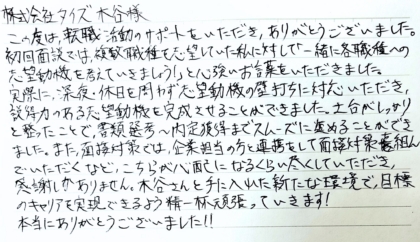 株式会社タイズ 木谷様
この度は、転職活動のサポートをいただき、ありがとうございました。
初回面談では、複数職種を志望していた私に対して「一緒に各職種への
志望動機を考えていきましょう！」と心強いお言葉をいただきました。
実際に、深夜・休日を問わず志望動機の壁打ちに対応いただき、
説得力のある志望動機を完成させることができました。土台がしっかり
と整ったことで、書類選考〜内定獲得までスムーズに進めることができ
ました。また、面接対策では、企業担当の方と連携をして面接対策を組ん
でいただくなど、こちらが心配になるくらい尽くしていただき、
感謝しかありません。木谷さんと手に入れた新たな環境で、目標
のキャリアを実現できるよう精一杯頑張っていきます！
本当にありがとうございました!!